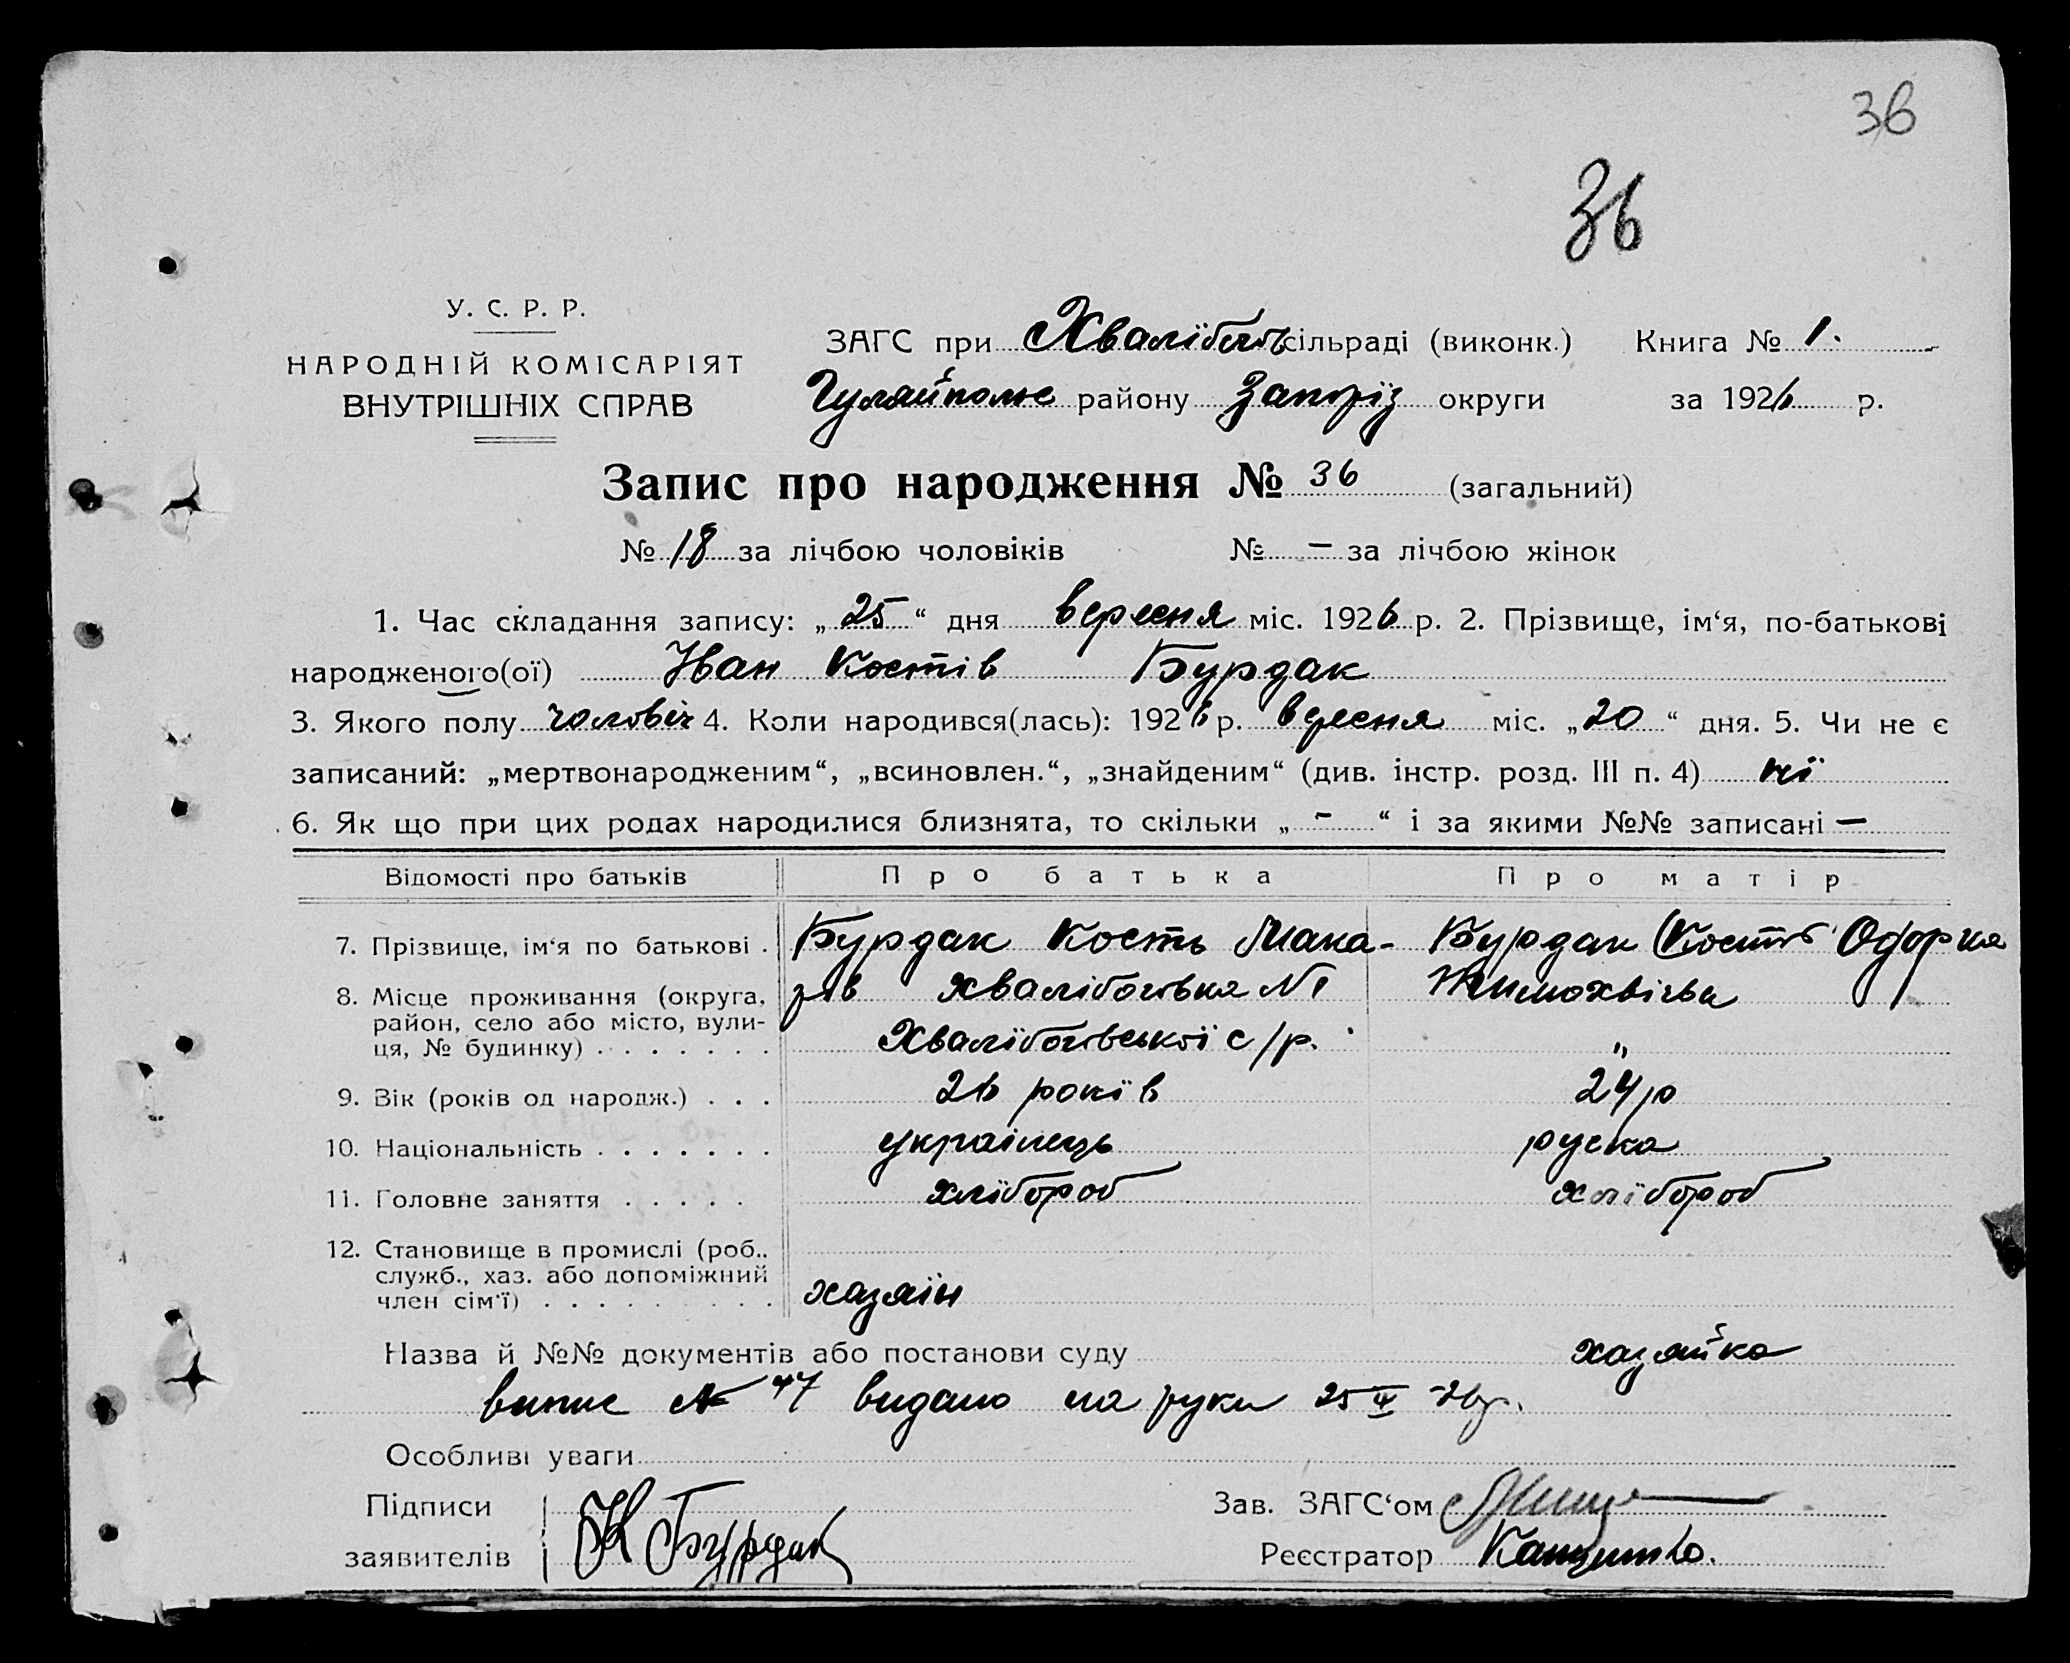 36
36
У. С. Р. Р.
НАРОДНІЙ КОМІСАРІЯТ
ВНУТРІШНІХ СПРАВ
ЗАГС при Хваліболів сільраді (виконк.) Книга № 1.
Гуляйполье району Запоріз округи за 1926 р.
Запис про народження № 36 (загальний)
№ 18 за лічбою чоловіків № – за лічбою жінок
1. Час складання запису: „25“ дня вересня міс. 1926 р. 2. Прізвище, ім‘я, по-батькові
народженого(ої) Иван Костів Бурдак
3. Якого полу чоловіч 4. Коли народився(лась): 1926 р. вересня міс. „20“ дня. 5. Чи не є
записаний: „мертвонародженим“, „всиновлен.“, „знайденим“ (див. інстр. розд. III п. 4) ні
6. Як що при цих родах народилися близнята, то скільки „ - “ і за якими №№ записані —
Відомості про батьків Про батька Про матір
7. Прізвище, ім‘я по батькові . Бурдак Кость Мака- Бурдак Одорка
8. Місце проживання (округа, рів N 1
район, село або місто, вули-
ця, № будинку) . . . . . . . с/р. „
9. Вік (років од народж.) . . . 26 років 24 р
10. Національність . . . . . . . українець руска
11. Головне заняття . . . . . хлібороб хлібороб
12. Становище в промислі (роб.,
служб., хаз. або допоміжний
член сім‘ї) . . . . . . . . . хазяїн
Назва й №№ документів або постанови суду хазяйка
випис № 47 видано на руки 25
Особливі уваги
Підписи Зав. ЗАГС‘ом
заявителів К Бурдак Реєстратор